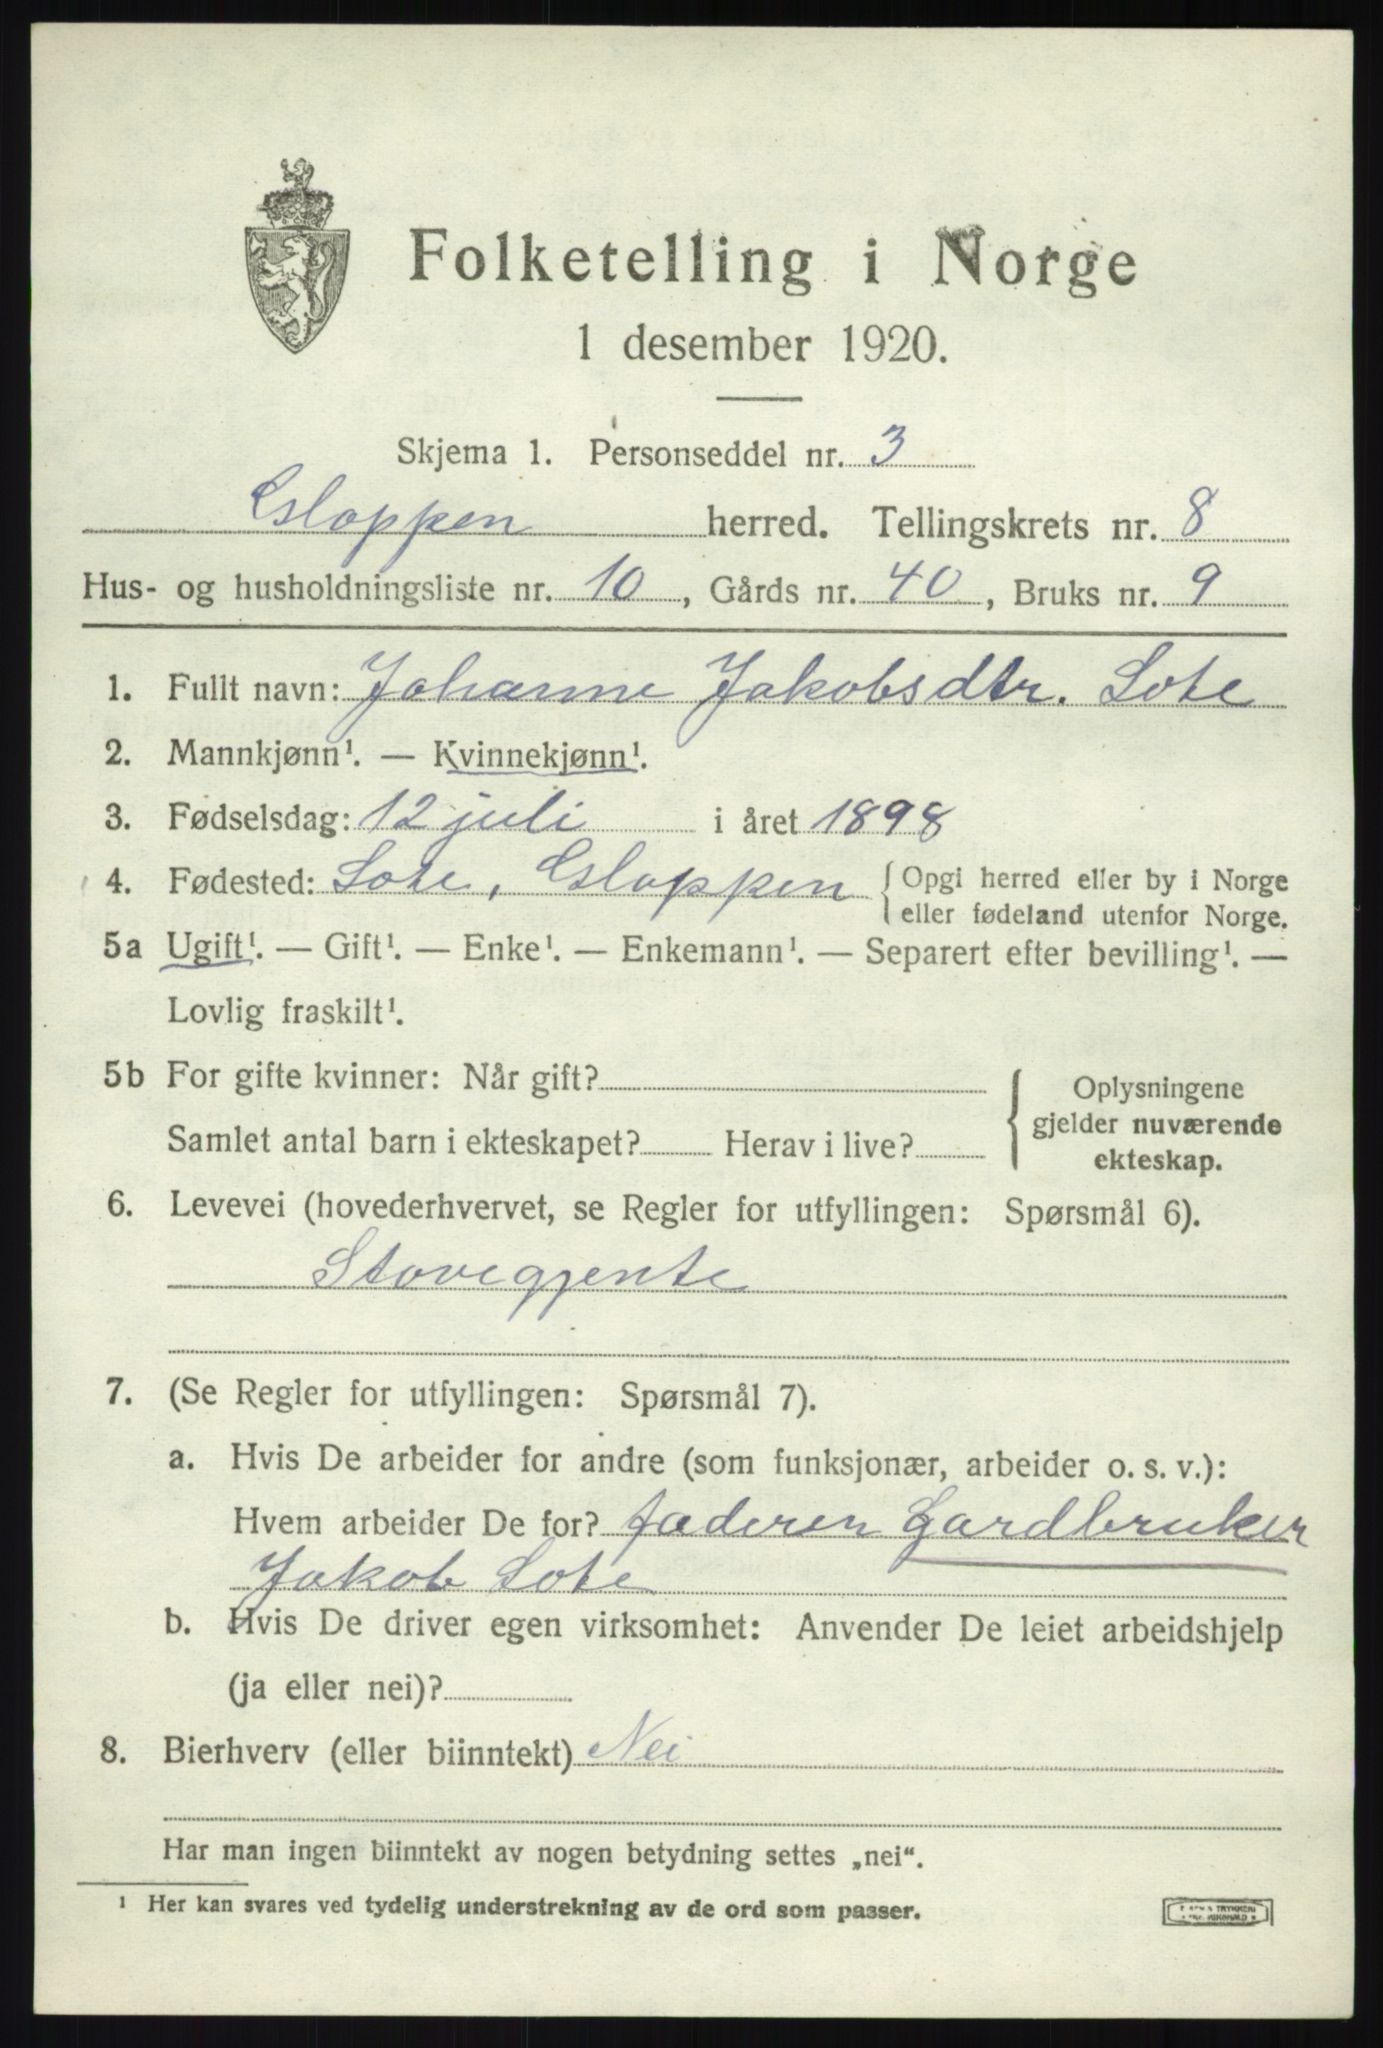 Folketelling i Norge
1 desember 1920.
Skjema 1. Personseddel nr. 3
Gloppen herred. Tellingskrets nr. 8
Hus- og husholdningsliste nr. 10, Gårds nr. 40, Bruks nr. 9
1. Fullt navn: Johanne Jakobsdtr. Lote
2. Mannkjønn¹. — Kvinnekjønn¹.
3. Fødselsdag: 12 juli i året 1898
4. Fødested: Lote, Gloppen { Opgi herred eller by i Norge
eller fødeland utenfor Norge.
5a Ugift¹. — Gift¹. — Enke¹. — Enkemann¹. — Separert efter bevilling¹. —
Lovlig fraskilt¹.
5b For gifte kvinner: Når gift?
Samlet antal barn i ekteskapet? Herav i live?
{ Oplysningene
gjelder nuværende
ekteskap.
6. Levevei (hovederhvervet, se Regler for utfyllingen: Spørsmål 6).
Stovegjente
7. (Se Regler for utfyllingen: Spørsmål 7).
a. Hvis De arbeider for andre (som funksjonær, arbeider o. s. v.):
Hvem arbeider De for? faderen Gardbruker
Jakob Lote
b. Hvis De driver egen virksomhet: Anvender De leiet arbeidshjelp
(ja eller nei)?
8. Bierhverv (eller biinntekt) Nei
Har man ingen biinntekt av nogen betydning settes „nei“.
¹ Her kan svares ved tydelig understrekning av de ord som passer.